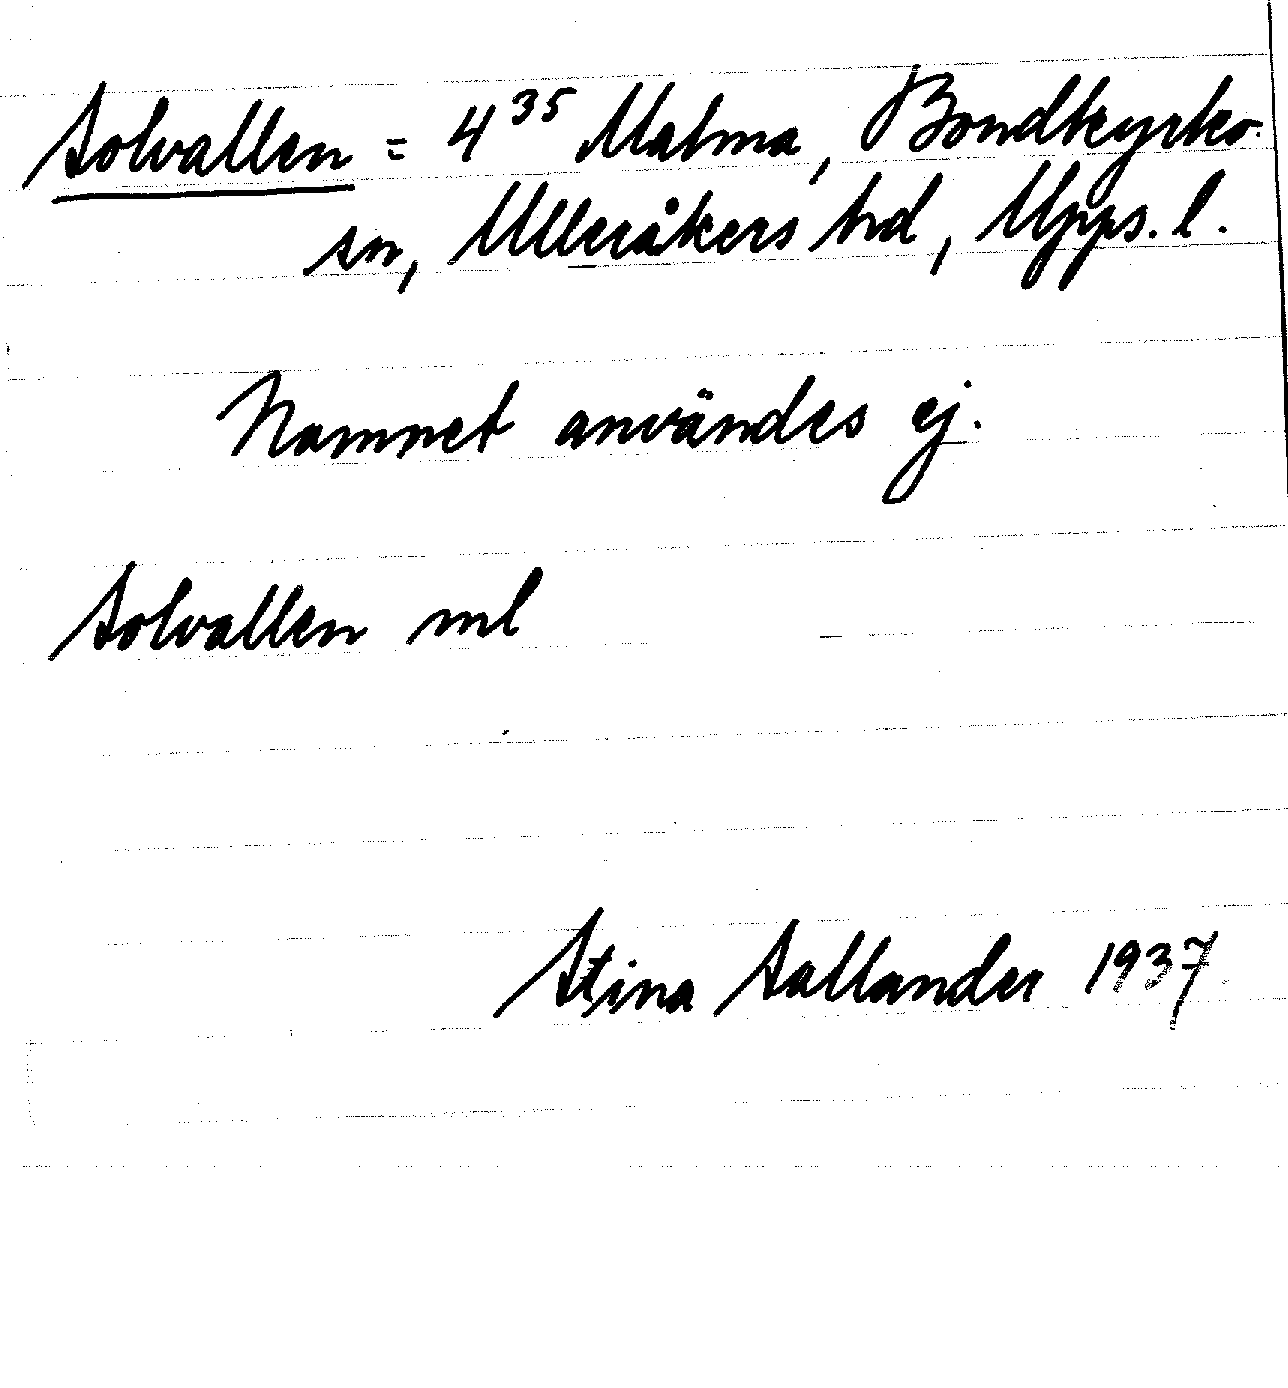 Solvallen = 4³⁵ Malma, Bondkyrko
sn, Ulleråkers hd, Upps. l.
Namnet användes ej.
Solvallen ml
Stina Sallander 1937